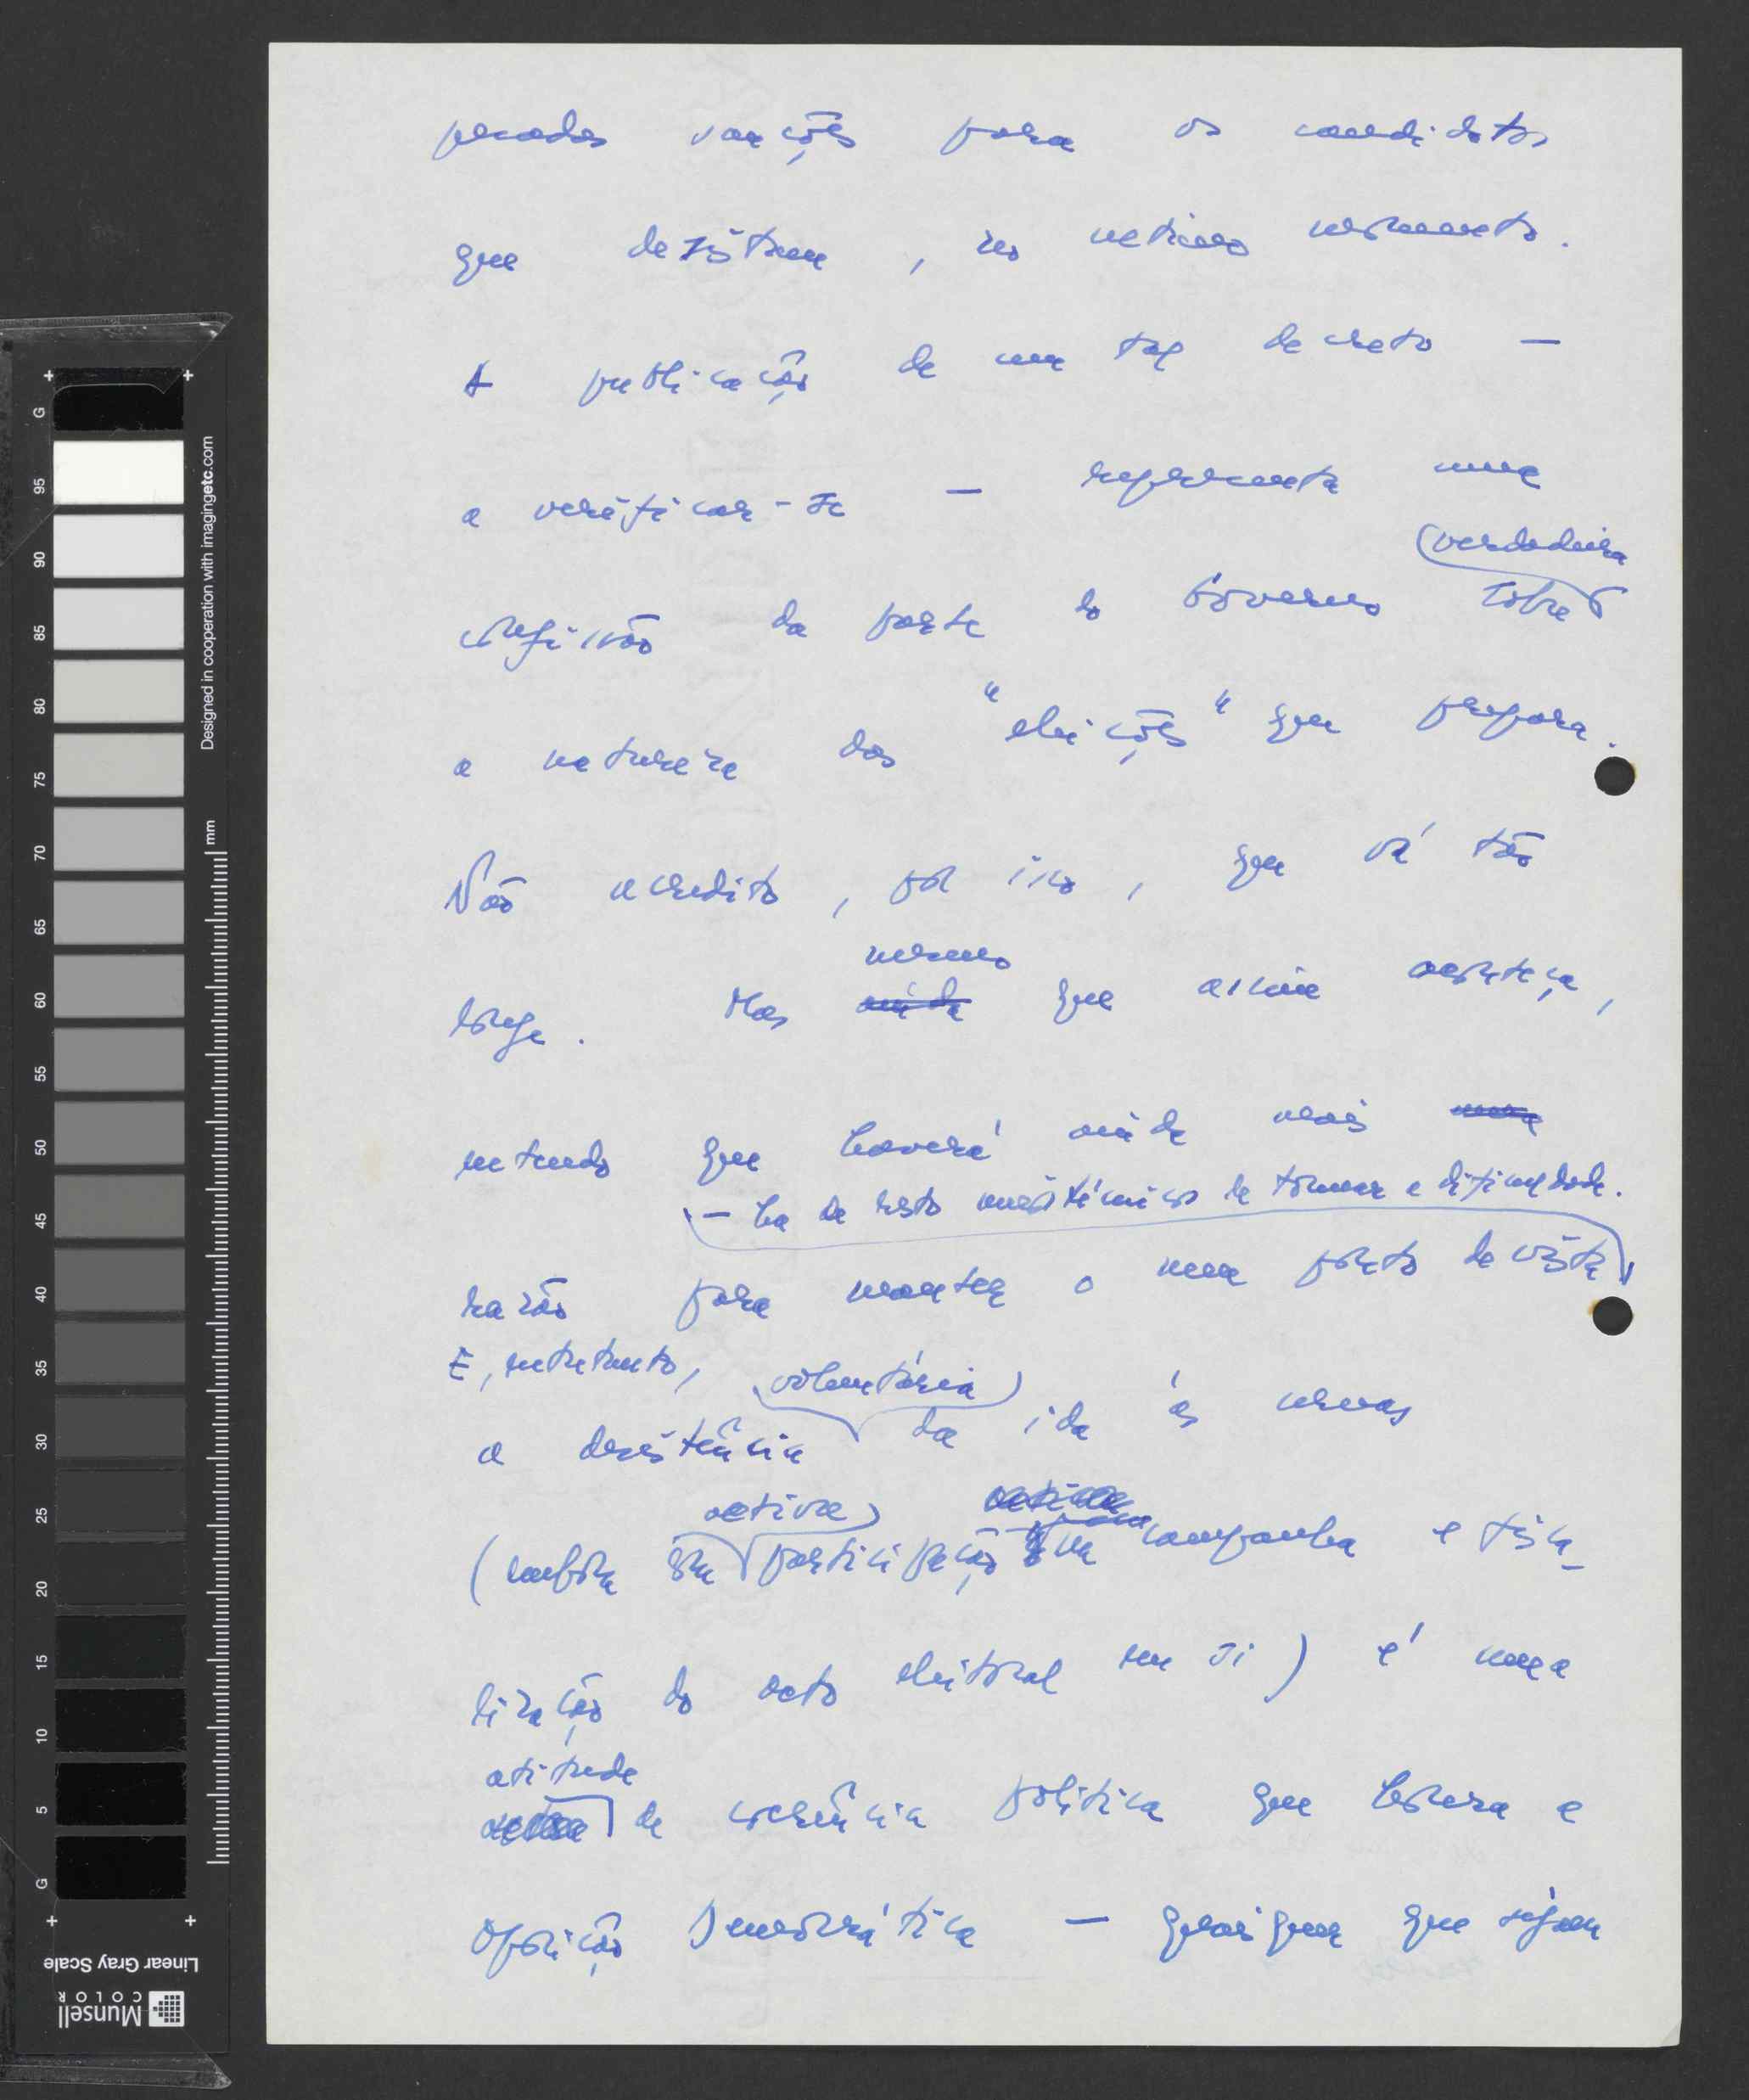 pesadas sanções para os candidatos
que desistam, no último momento.
A publicação de um tal decreto —
a verificar-se — representa uma
verdadeira
confissão da parte do Governo sobre
a natureza das "eleições" que prepara.
Não acredito, por isso, que vá tão
mesmo
longe. Mas ainda que assim aconteça,
entendo que haverá ainda mais uma
— há de resto maneiras de tornear a dificuldade.
razão para manter o meu ponto de vista
E, entretanto, voluntária
a desistência da ida às urnas
activa
(embora com participação na campanha e fisca-
lização do acto eleitoral em si) é uma
atitude
de coerência política que honra a
Oposição Democrática — quaisquer que sejam
G
95
90
85
80
75
70
65
60
55
50
45
40
35
30
25
20
15
10
5
G
mm
Designed in cooperation with imagingetc.com
Linear Gray Scale
Munsell
COLOR